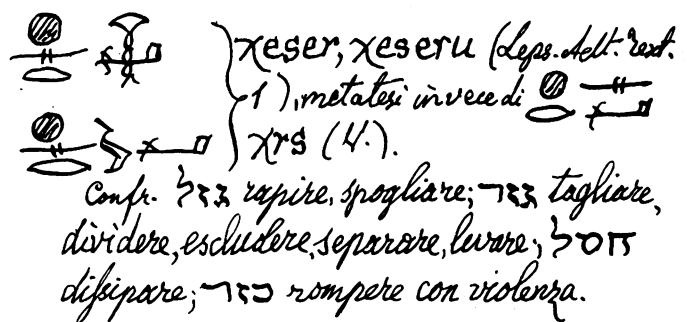 χeser, χeseru (Leps. Aelt. Text.
1), metatesi in vece di 𓐍𓂋𓊃𓂡
χrs (V.).
Confr. גזל rapire, spogliare; גזר tagliare,
dividere, escludere, separare, levare; חסל
diſsipare; כזר rompere con violenza.